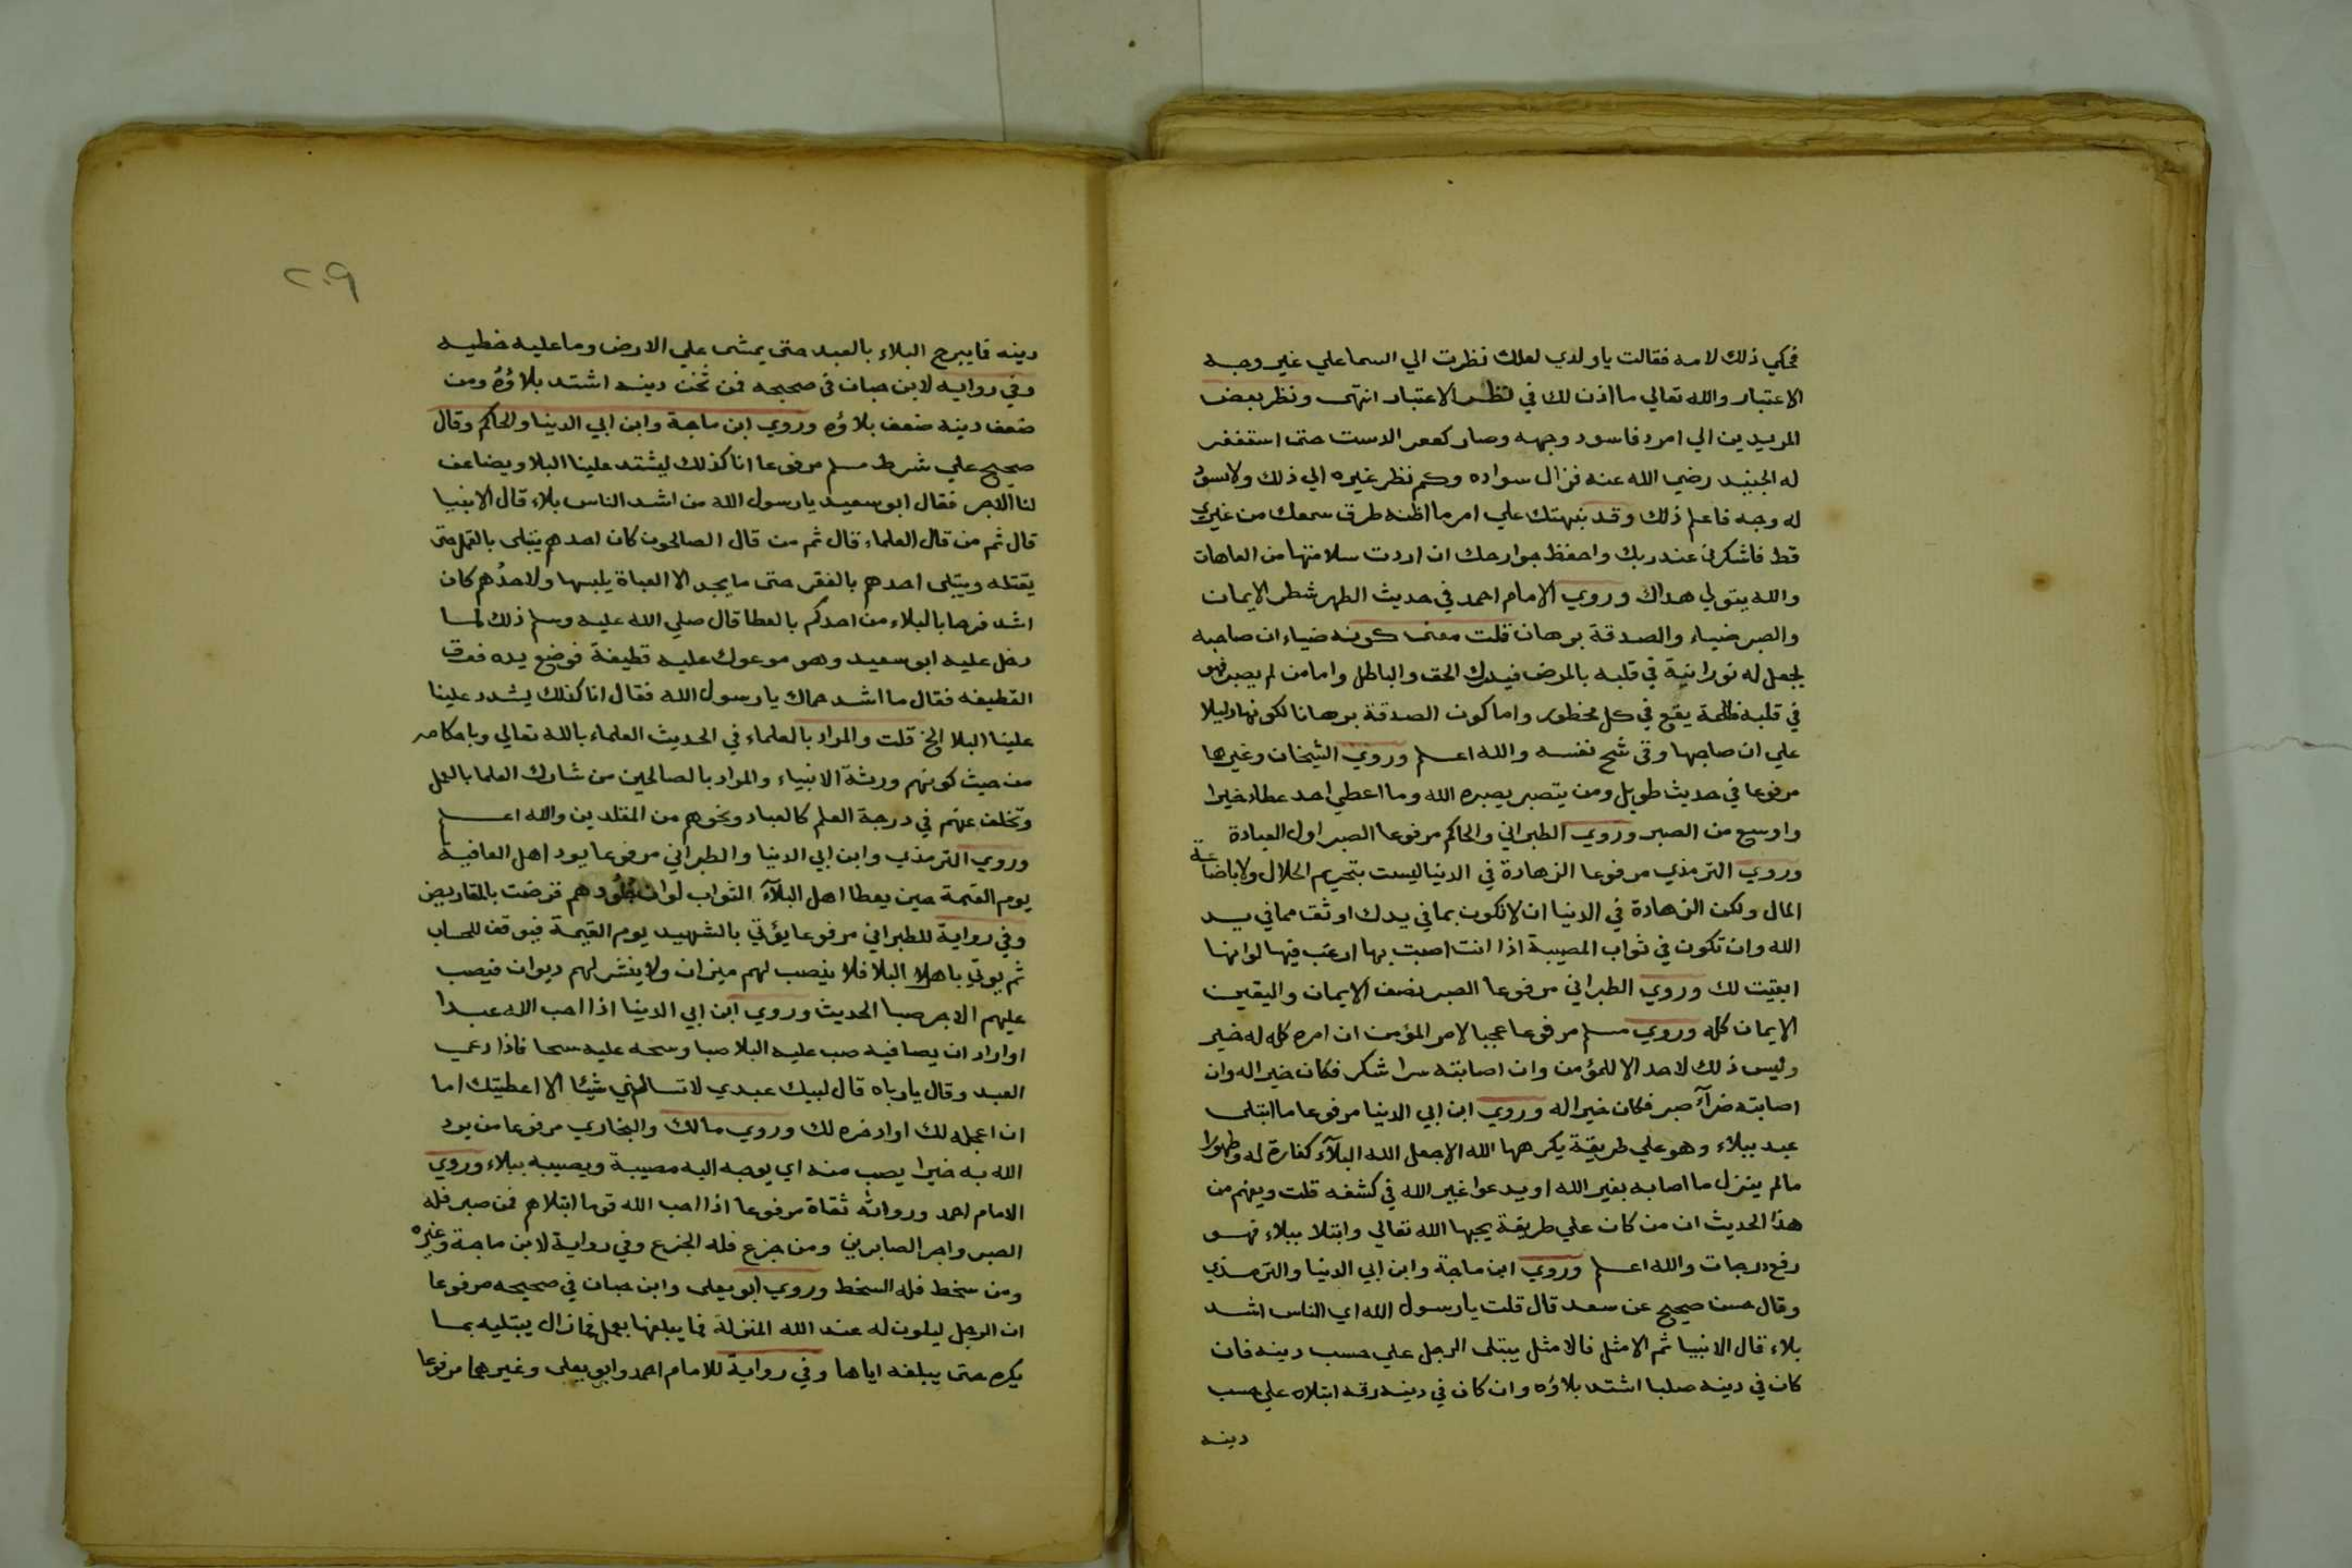 فحكي ذلك لامه فقالت يا ولدي لعلك نظرت الي السما علي غير وجه
الاعتبار والله تعالي ما اذن لك في نظر الاعتبار انتهى ونظر بعض
المريدين الي امرد فاسود وجهه وصار كقعر الدست حتى استغفر
له الجنيد رضي الله عنه فزال سواده وكم نظر غيره الي ذلك ولا يسود
له وجه فاعلم ذلك وقد نبهتك علي امر ما اظنه طرق سمعك من غيري
قط فاشكرني عند ربك واحفظ جوارحك ان اردت سلامتها من العاهات
والله يتولي هداك وروي الامام احمد في حديث الطهر شطر الايمان
والصبر ضياء والصدقة برهان قلت معنى كونه ضياء ان صاحبه
يجعل له نورانية في قلبه بالمرض فيدرك الحق والباطل واما من لم يصبر فهو
في قلبه ظلمة يقع في كل محظور واما كون الصدقة برهانا لكونها دليلا
علي ان صاحبها وقي شح نفسه والله اعلم وروي الشيخان وغيرها
مرفوعا في حديث طويل ومن يتصبر يصبره الله وما اعطي احد عطاء خيرا
واوسع من الصبر وروي الطبراني والحاكم مرفوعا الصبر اول العبادة
وروي الترمذي مرفوعا الزهادة في الدنيا ليست بتحريم الحلال ولا باضاعة
المال ولكن الزهادة في الدنيا ان لا تكون بما في يدك اوثق مما في يد
الله وان تكون في ثواب المصيبة اذا انت اصبت بها ارغب فيها لو انها
ابقيت لك وروي الطبراني مرفوعا الصبر نصف الايمان واليقين
الايمان كله وروي مسلم مرفوعا عجبا لامر المؤمن ان امره كله له خير
وليس ذلك لاحد الا للمؤمن وان اصابته سرا شكر فكان خيرا له وان
اصابته ضرآء صبر فكان خيرا له وروي ابن ابي الدنيا مرفوعا ما ابتلى
عبد ببلاء وهو علي طريقة يكرهها الله الا جعل الله البلآء كفارة له وطهورا
مالم ينزل ما اصابه بغير الله او يدعوا غير الله في كشفه قلت ويفهم من
هذا الحديث ان من كان علي طريقة يحبها الله تعالي وابتلا ببلاء فهو
رفع درجات والله اعلم وروي ابن ماجة وابن ابي الدنيا والترمذي
وقال حسن صحيح عن سعد قال قلت يا رسول الله اي الناس اشد
بلاء قال الانبيا ثم الامثل فالامثل يبتلى الرجل علي حسب دينه فان
كان في دينه صلبا اشتد بلاؤه وان كان في دينه رقه ابتلاه علي حسب
دينه
٢٠٩
دينه فما يبرح البلاء بالعبد حتى يمشي علي الارض وما عليه خطيه
وفي روايه لابن حبان في صحيحه فمن ثخن دينه اشتد بلاؤه ومن
ضعف دينه ضعف بلاؤه وروي ابن ماجة وابن ابي الدنيا والحاكم وقال
صحيح علي شرط مسلم مرفوعا انا كذلك ليشتد علينا البلا ويضاعف
لنا الاجر فقال ابو سعيد يا رسول الله من اشد الناس بلاء قال الانبيا
قال ثم من قال العلماء قال ثم من قال الصالحون كان احدهم يبتلى بالقمل حتى
يقتله ويبتلى احدهم بالفقر حتى ما يجد الا العباة يلبسها ولاحدهم كان
اشد فرحا بالبلاء من احدكم بالعطا قال صلي الله عليه وسلم ذلك لما
دخل عليه ابو سعيد وهو موعوك عليه قطيفة فوضع يده فوق
القطيفه فقال ما اشد حماك يا رسول الله فقال انا كذلك يشدد علينا
علينا البلا الخ قلت والمراد بالعلماء في الحديث العلماء بالله تعالي وباحكامه
من حيث كونهم ورثة الانبياء والمراد بالصالحين من شارك العلما بالعمل
وتخلف عنهم في درجة العلم كالعباد ونحوهم من المقلدين والله اعلم
وروي الترمذي وابن ابي الدنيا والطبراني مرفوعا يود اهل العافية
يوم القيمة حين يعطا اهل البلآء الثواب لو ان جلودهم قرضت بالمقاريض
وفي رواية للطبراني مرفوعا يؤتي بالشهيد يوم القيمة فيوقف للحساب
ثم يوتي باهل البلا فلا ينصب لهم ميزان ولا ينشر لهم ديوان فيصب
عليهم الاجر صبا الحديث وروي ابن ابي الدنيا اذا احب الله عبدا
او اراد ان يصافيه صب عليه البلا صبا وسحه عليه سحا فاذا دعي
العبد وقال يا رباه قال لبيك عبدي لا تسالني شيئا الا اعطيتك اما
ان اعجله لك او ادخره لك وروي مالك والبخاري مرفوعا من يرد
الله به خيرا يصب منه اي يوجه اليه مصيبة ويصيبه ببلاء وروي
الامام احمد ورواته ثقاة مرفوعا اذا احب الله قوما ابتلاهم فمن صبر فله
الصبر واجر الصابرين ومن جزع فله الجزع وفي رواية لابن ماجة وغيره
ومن سخط فله السخط وروي ابو يعلى وابن حبان في صحيحه مرفوعا
ان الرجل ليكون له عند الله المنزلة فما يبلغها بعمل فما زال يبتليه بما
يكره حتى يبلغه اياها وفي رواية للامام احمد وابو يعلى وغيرهما مرفوعا